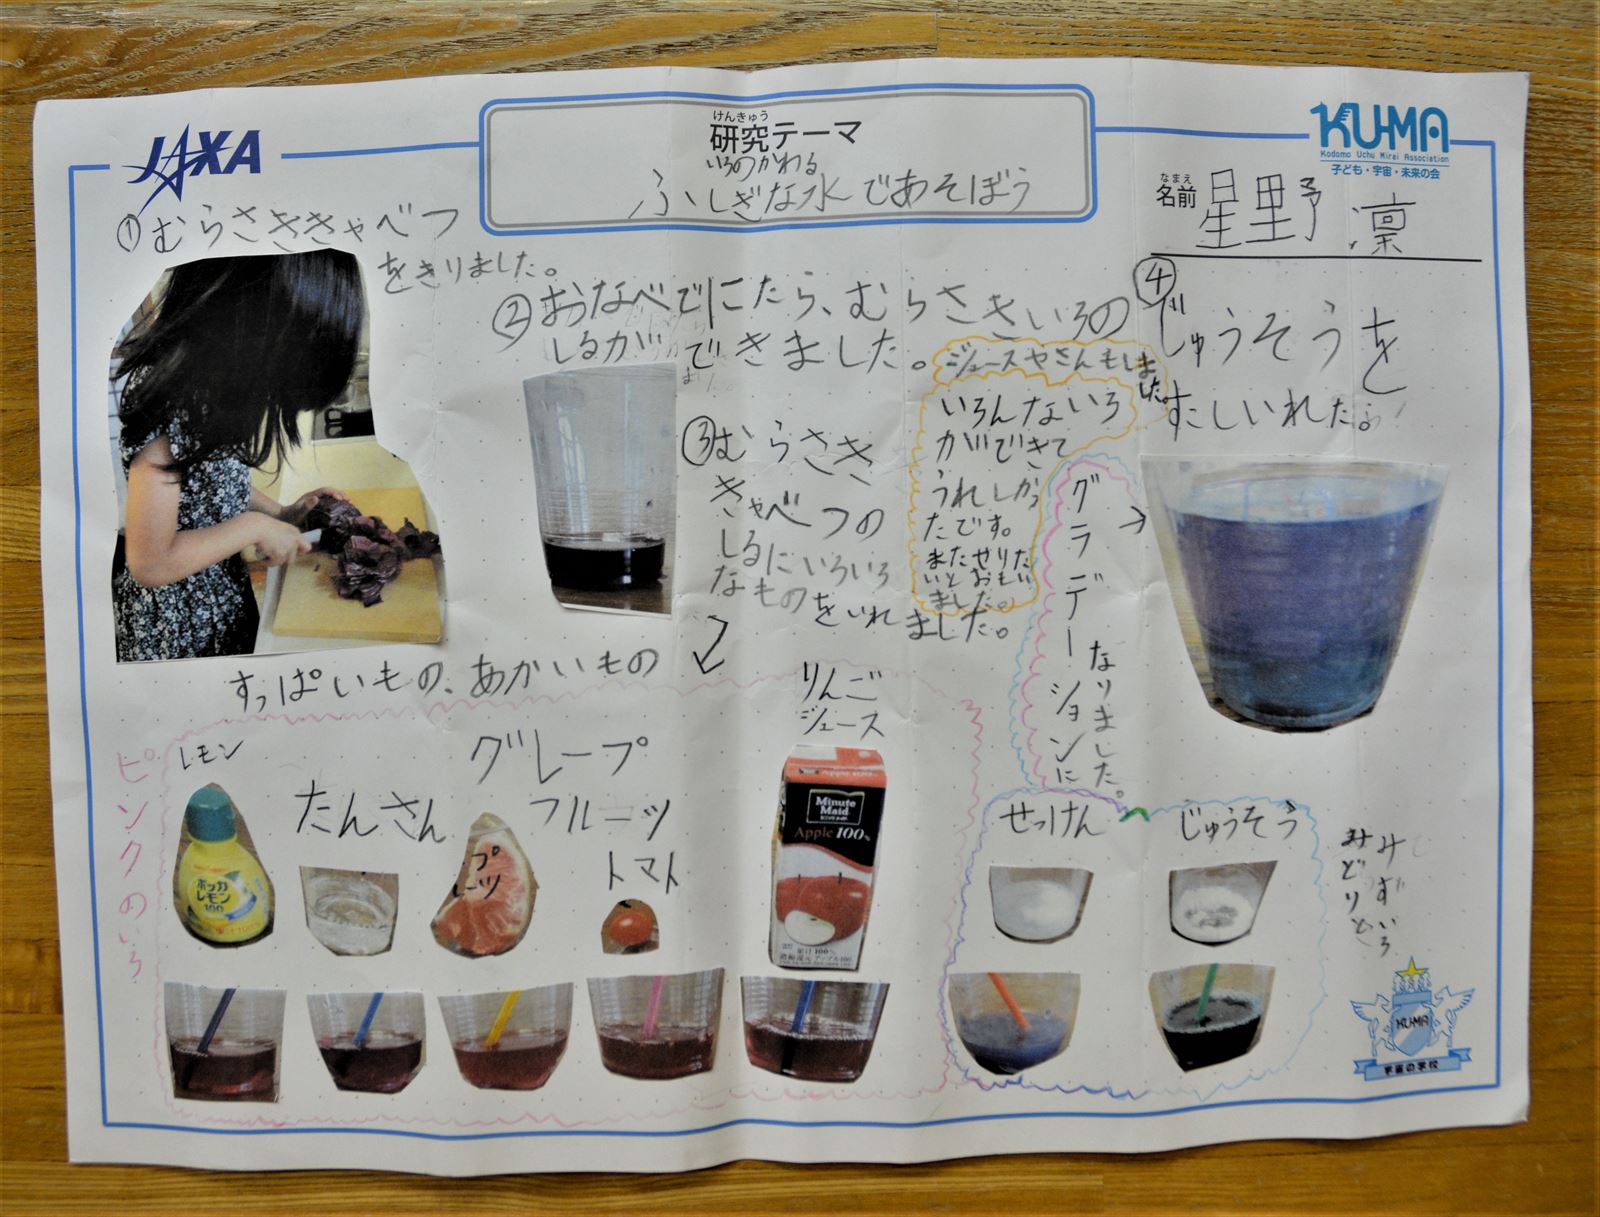 JAXA
けんきゅう
研究テーマ
いろのかわる
ふしぎな水であそぼう
KU-MA
Kodomo Uchu Mirai Association
子ども・宇宙・未来の会
なまえ
名前
星野 凛
①むらさききゃべつ
をきりました。
②おなべでにたら、むらさきいろの
しるができました。
③むらさき
きゃべつの
しるにいろいろ
なものをいれました。
ジュースやさんもしました。
いろんないろ
ができて
うれしかっ
たです。
またせりた
いとおもい
ました。
④
じゅうそうを
すこしいれたら
グラデーションに
なりました。
すっぱいもの、あかいもの
ピンクのいろ
レモン
ポッカ
レモン
100
たんさん
グレープ
フルーツ
トマト
りんご
ジュース
Apple 100%
Minute
Maid
Apple 100%
果汁100%
せっけん
じゅうそう
みずいろ
みどりと
KU-MA
宇宙の学校